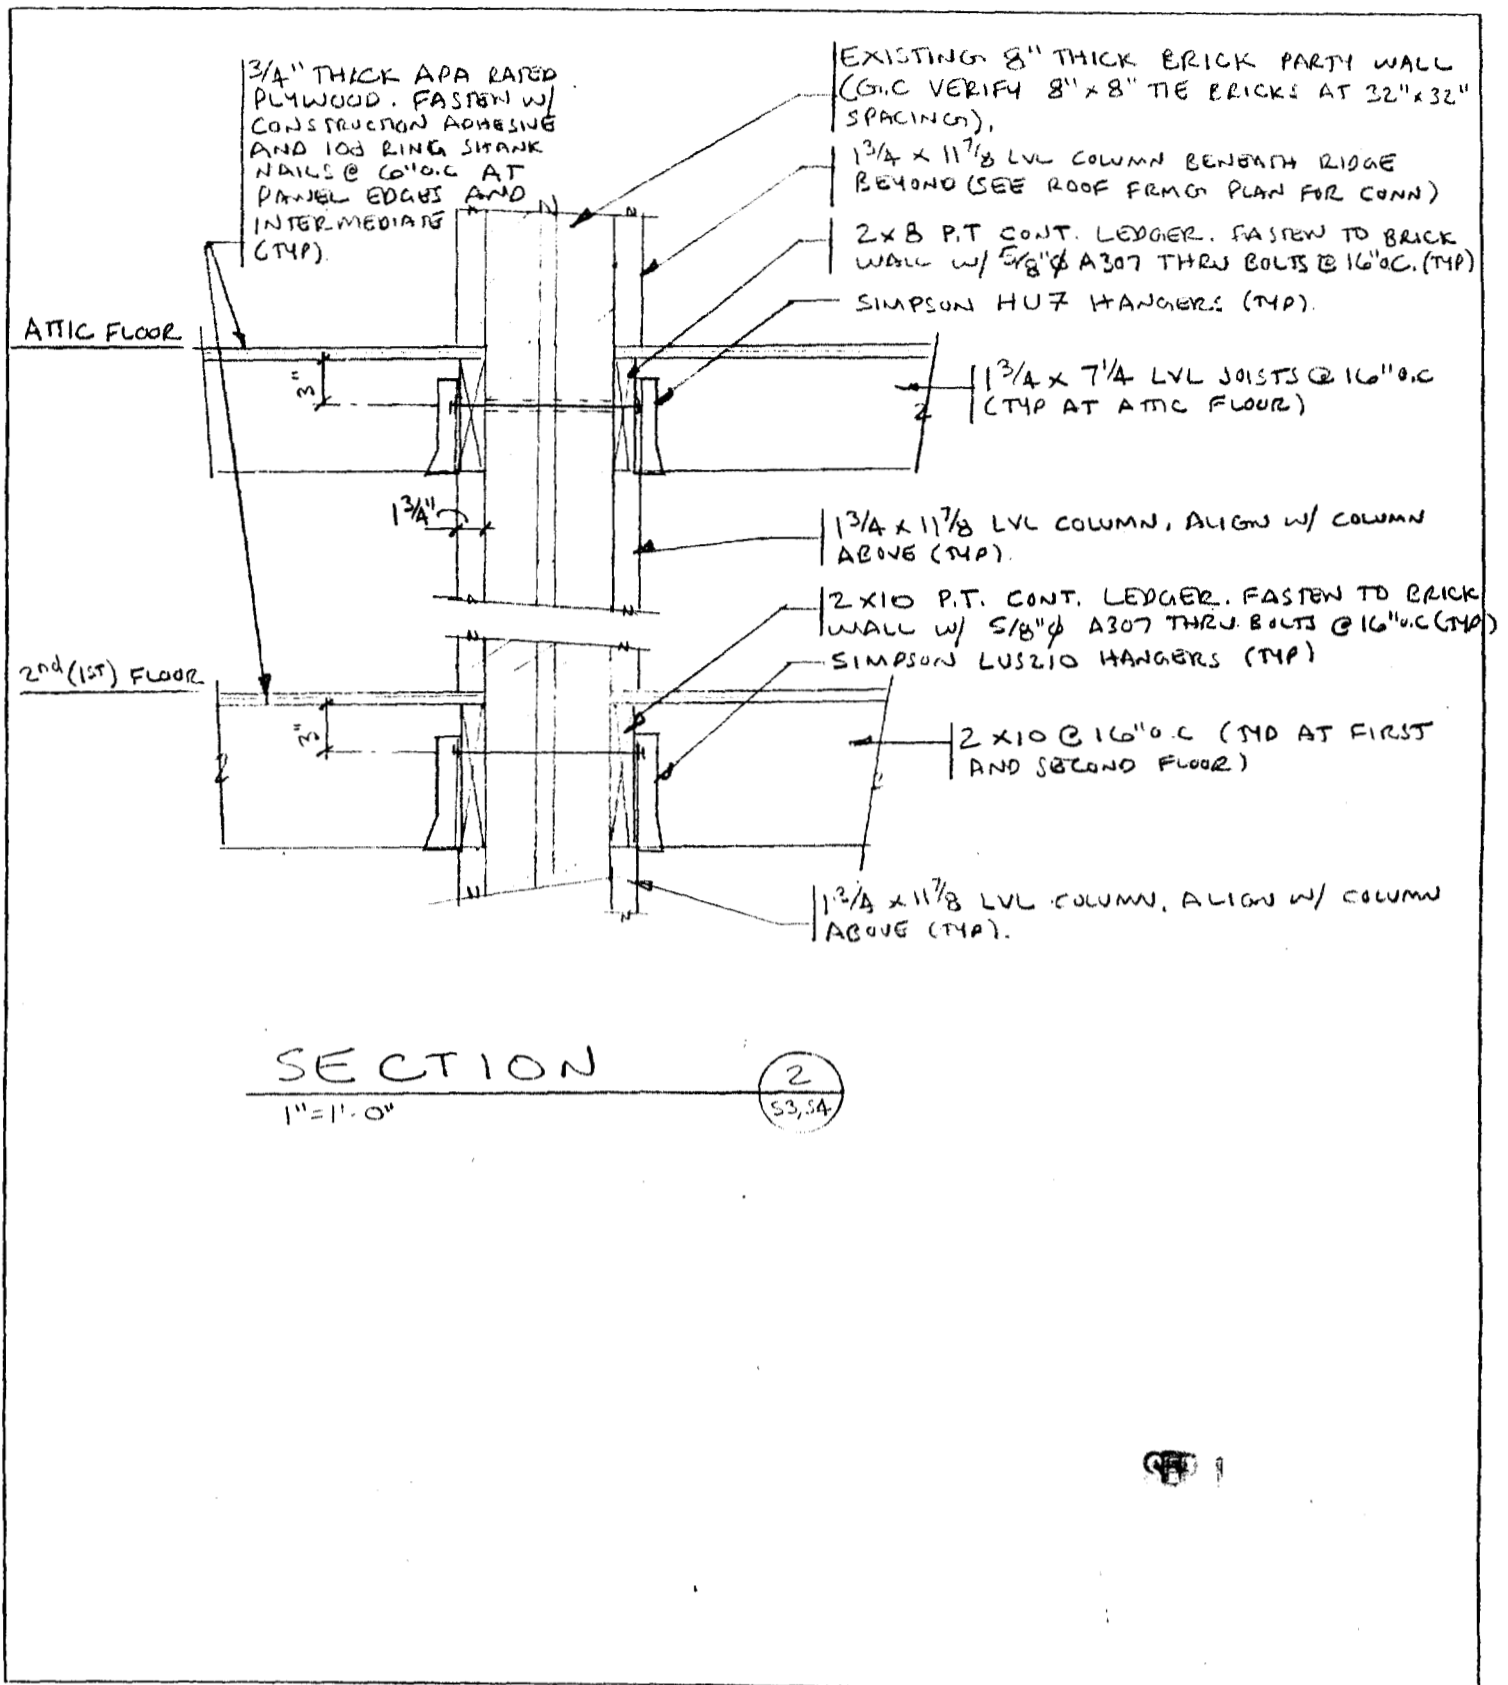 3/4" THICK APA RATED
PLYWOOD. FASTEN W/
CONSTRUCTION ADHESIVE
AND 10d RING SHANK
NAILS @ 6"O.C AT
PANEL EDGES AND
INTERMEDIATE
(TYP).
EXISTING 8" THICK BRICK PARTY WALL
(G.C VERIFY 8" x 8" TIE BRICKS AT 32" x 32"
SPACING).
1 3/4 x 11 7/8 LVL COLUMN BENEATH RIDGE
BEYOND (SEE ROOF FRMG PLAN FOR CONN)
2 x 8 P.T CONT. LEDGER. FASTEN TO BRICK
WALL W/ 5/8"ø A307 THRU BOLTS @ 16"O.C. (TYP)
SIMPSON HU7 HANGERS (TYP).
ATTIC FLOOR
3"
1 3/4 x 7 1/4 LVL JOISTS @ 16"O.C
(TYP AT ATTIC FLOOR)
1 3/4"
1 3/4 x 11 7/8 LVL COLUMN, ALIGN W/ COLUMN
ABOVE (TYP).
2 x10 P.T. CONT. LEDGER. FASTEN TO BRICK
WALL W/ 5/8"ø A307 THRU BOLTS @ 16"O.C (TYP)
SIMPSON LUS210 HANGERS (TYP)
2nd (1ST) FLOOR
3"
2 x10 @ 16"O.C (TYP AT FIRST
AND SECOND FLOOR)
1 3/4 x 11 7/8 LVL COLUMN, ALIGN W/ COLUMN
ABOVE (TYP).
SECTION
1"=1'-0"
2
S3,S4